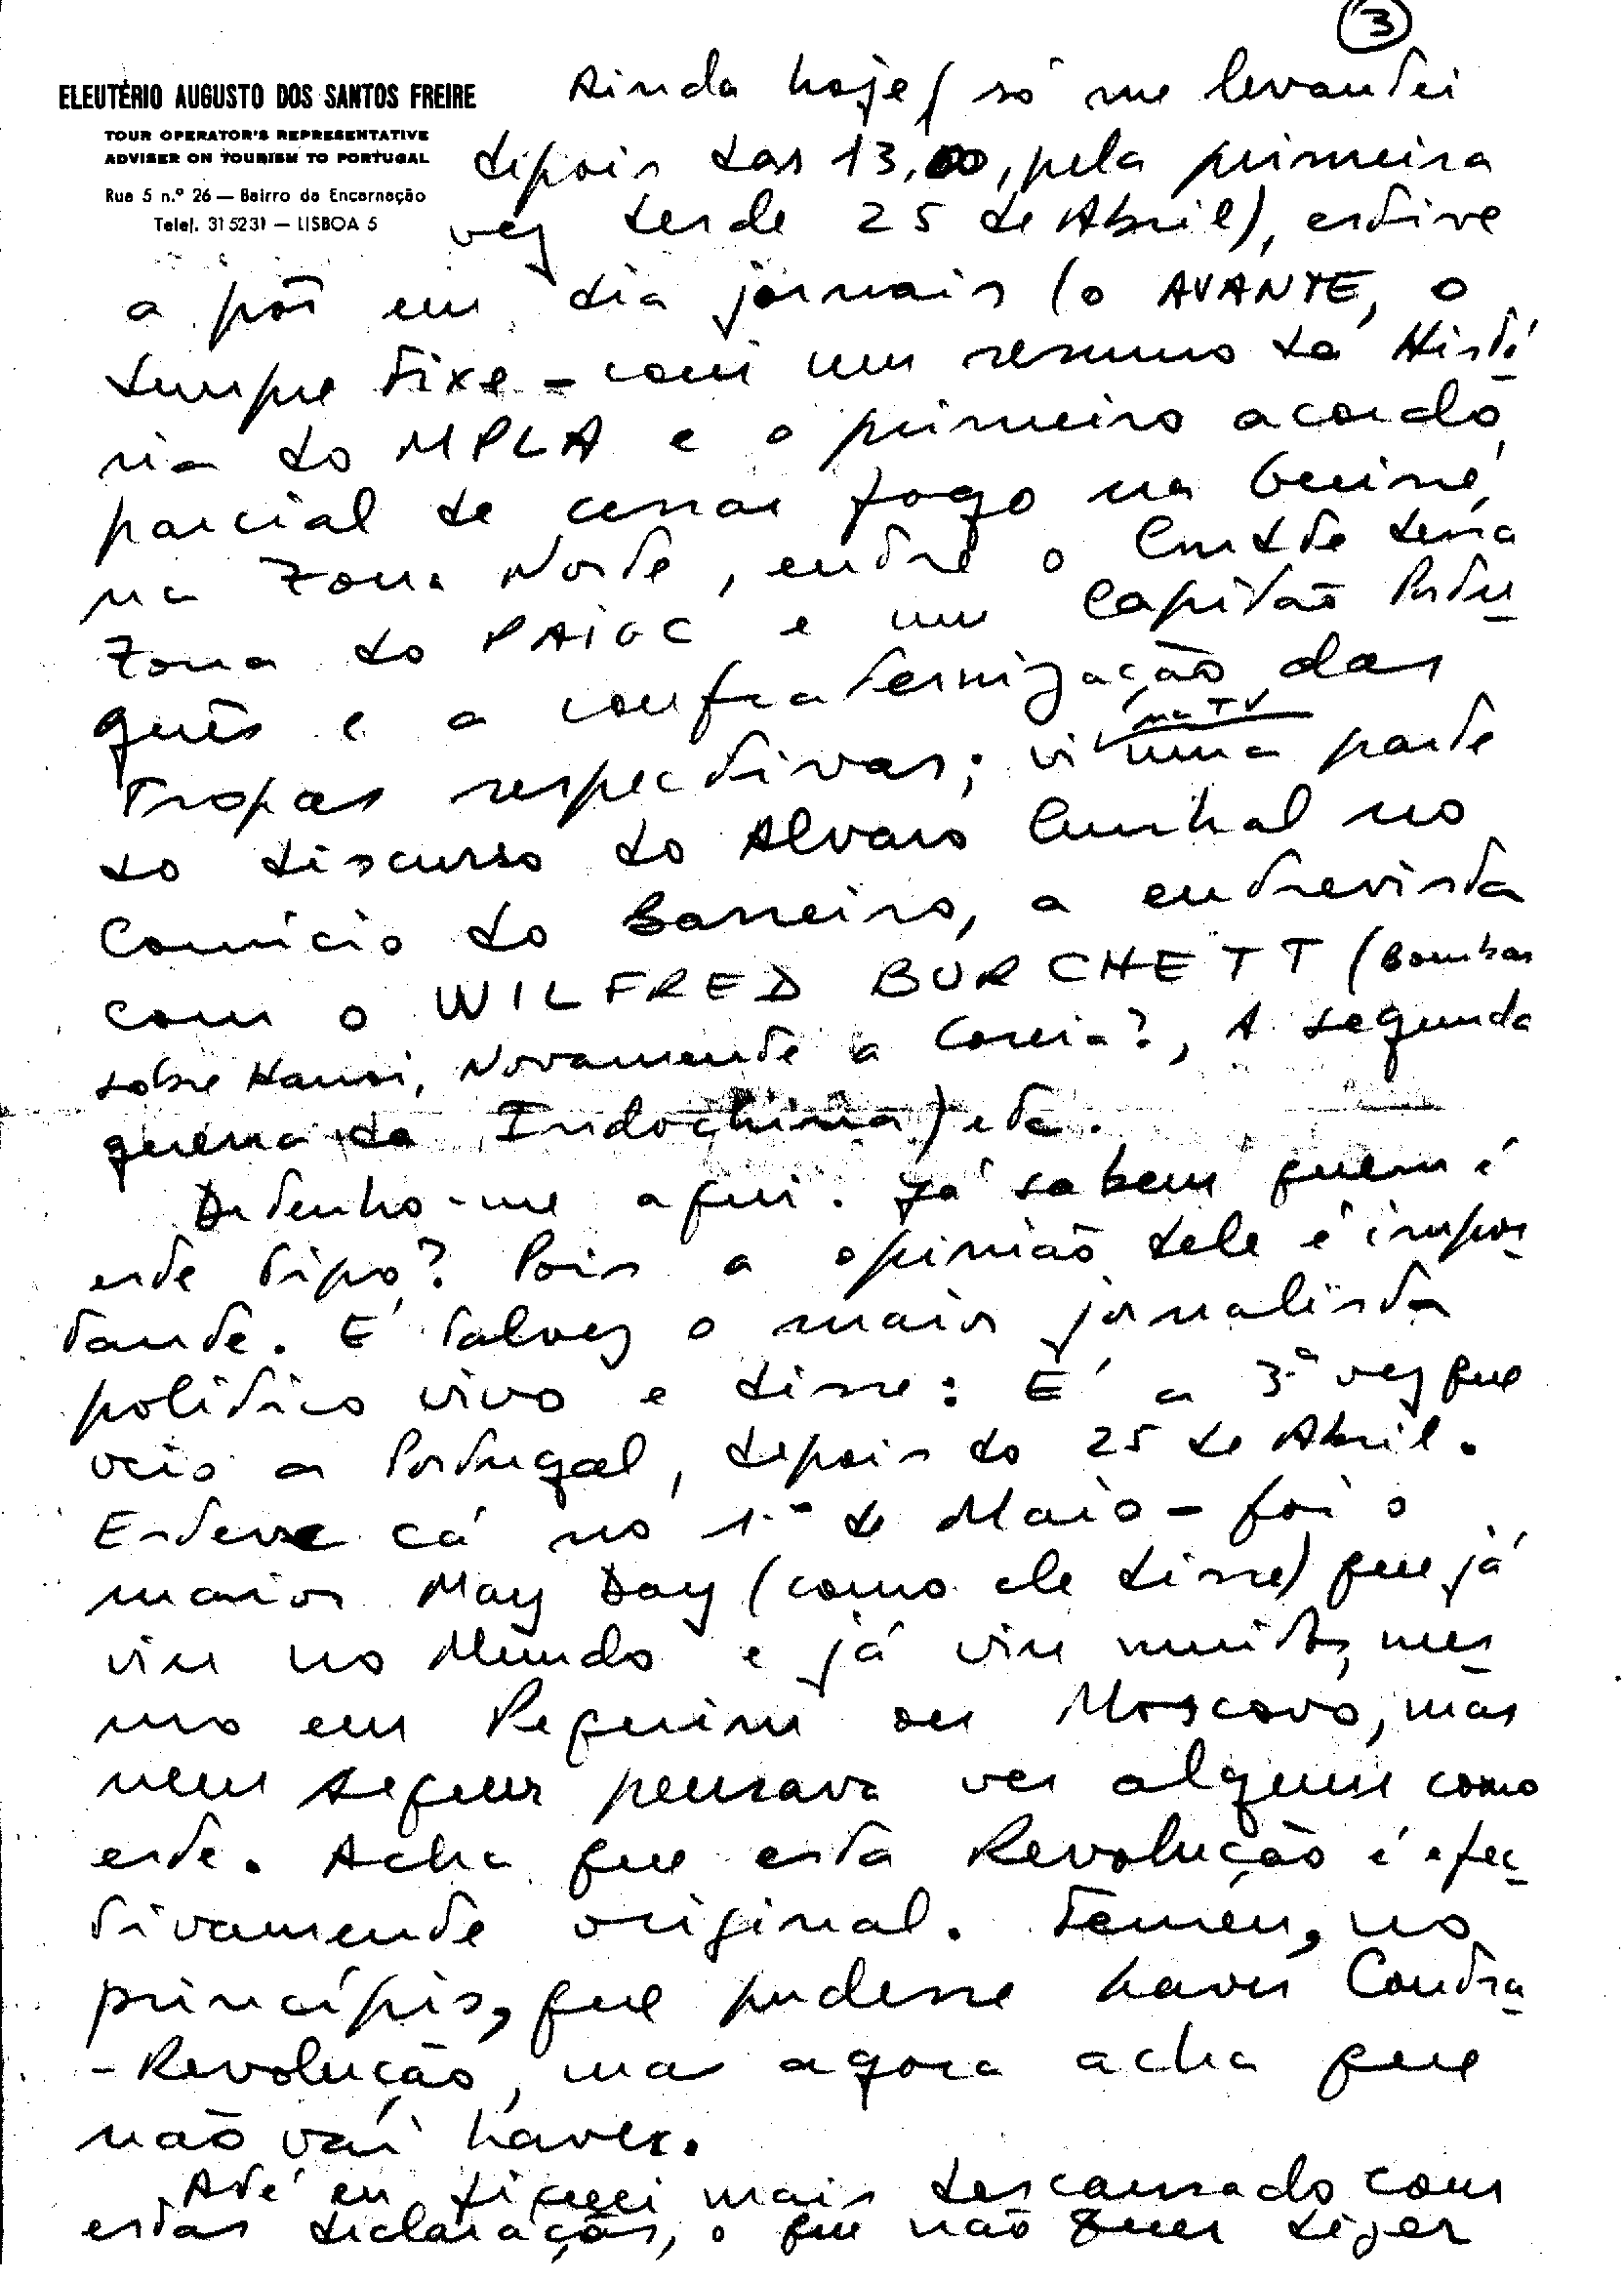 3
ELEUTÉRIO AUGUSTO DOS SANTOS FREIRE
TOUR OPERATOR'S REPRESENTATIVE
ADVISER ON TOURISM TO PORTUGAL
Rua 5 n.º 26 — Bairro da Encarnação
Telef. 315231 — LISBOA 5
Ainda hoje (só me levantei
depois das 13,00, pela primeira
vez desde 25 de Abril), estive
a pôr em dia jornais (o AVANTE, o
Sempre Fixe - com um resumo da Histó
ria do MPLA e o primeiro acordo
parcial de cessar fogo na Guiné,
na Zona Norte, entre o Cmdte dessa
Zona do PAIGC e um Capitão Portu
guês e a confraternização das
Tropas respectivas; vi na TV uma parte
do discurso do Alvaro Cunhal no
Comício do Barreiro, a entrevista
com o WILFRED BURCHETT (Bombas
sobre Hanoi, Novamente a Coreia?, A segunda
guerra da Indochina) etc.
Detenho-me aqui. Já sabem quem é
este tipo? Pois a opinião dele é impor
tante. É talvez o maior jornalista
político vivo e disse: É a 3.ª vez que
veio a Portugal, depois do 25 de Abril.
Esteve cá no 1.º de Maio - foi o
maior May Day (como ele disse) que já
viu no Mundo e já viu muitos, mes
mo em Pequim ou Moscovo, mas
nem sequer pensava ver algum como
este. Acha que esta Revolução é efec
tivamente original. Temeu, no
princípio, que pudesse haver Contra
-Revolução, mas agora acha que
não vai haver.
Até eu fiquei mais descansado com
estas declarações, o que não quer dizer